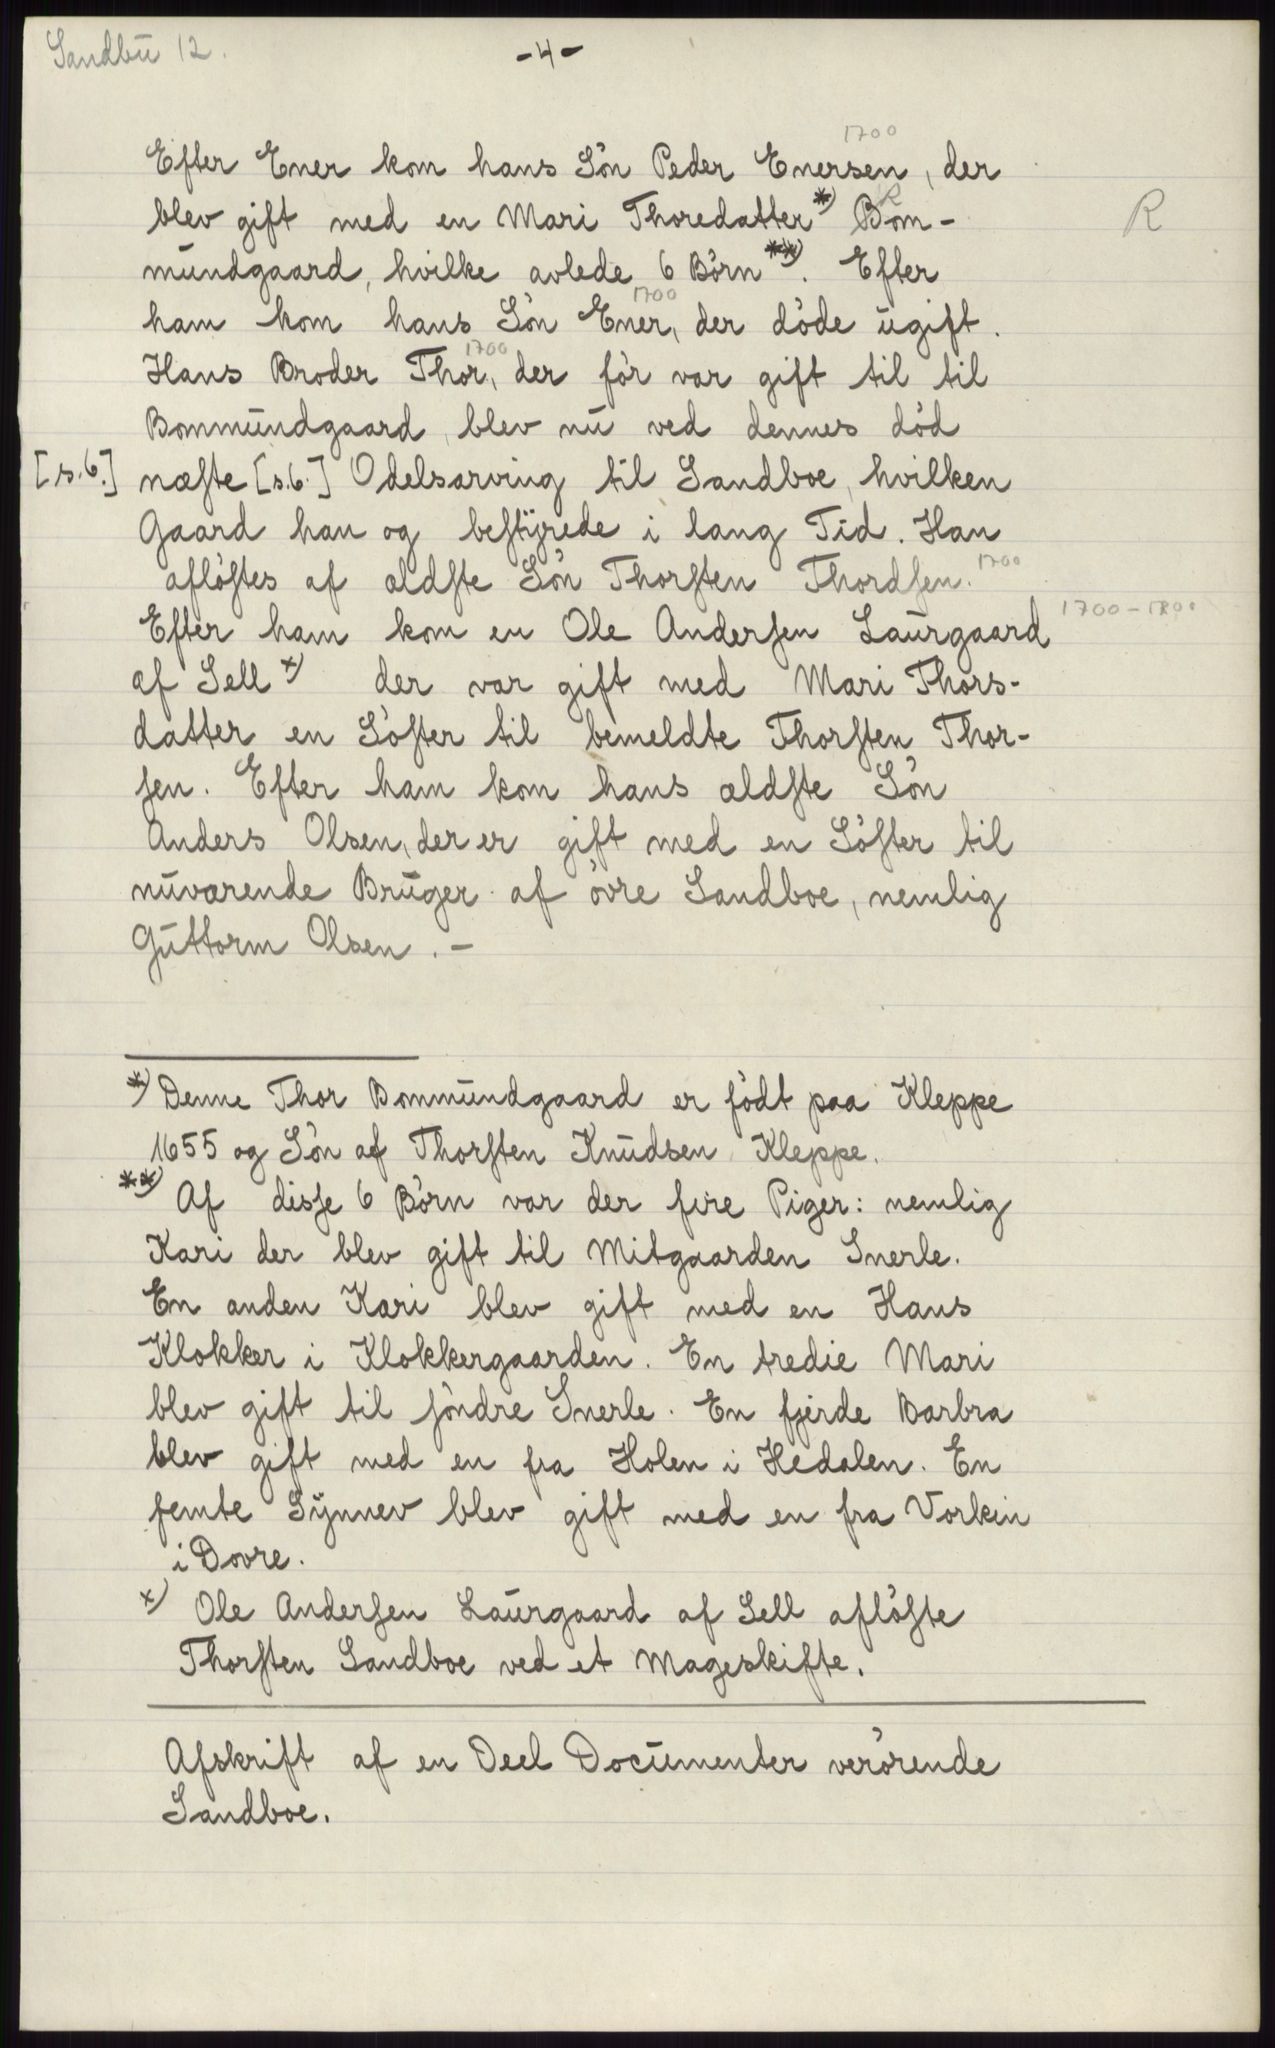 Sandbu 12.
-4-
1700
Efter Ener kom hans Sön Peder Enersen, der
blev gift med en Mari Thoredatter *) Bom-
R
mundgaard, hvilke avlede 6 Börn **). Efter
1700
ham kom hans Sön Ener, der döde ugift.
1700
Hans Broder Thor, der för var gift til til
Bommundgaard, blev nu ved dennes död
[s.6.] næste [s.6.] Odelsarving til Sandboe, hvilken
Gaard han og bestÿrede i lang Tid. Han
aflöstes af ældste Sön Thorsten Thordsen. 1700
Efter ham kom en Ole Andersen Laurgaard 1700-1800
af Sell x) der var gift med Mari Thors-
datter en Söster til bemeldte Thorsten Thor-
sen. Efter ham kom hans ældste Sön
Anders Olsen, der er gift med en Söster til
nuværende Bruger af övre Sandboe, nemlig
Guttorm Olsen. -
*) Denne Thor Bommundgaard er födt paa Kleppe
1655 og Sön af Thorsten Knudsen Kleppe.
**) Af disse 6 Börn var der fire Piger: nemlig
Kari der blev gift til Mitgaarden Snerle.
En anden Kari blev gift med en Hans
Klokker i Klokkergaarden. En tredie Mari
blev gift til söndre Snerle. En fjerde Barbra
blev gift med en fra Holen i Hedalen. En
femte Sÿnnev blev gift med en fra Vorkin
i Dovre.
x) Ole Andersen Laurgaard af Sell aflöste
Thorsten Sandboe ved et Mageskifte.
Afskrift af en Deel Documenter verörende
Sandboe.